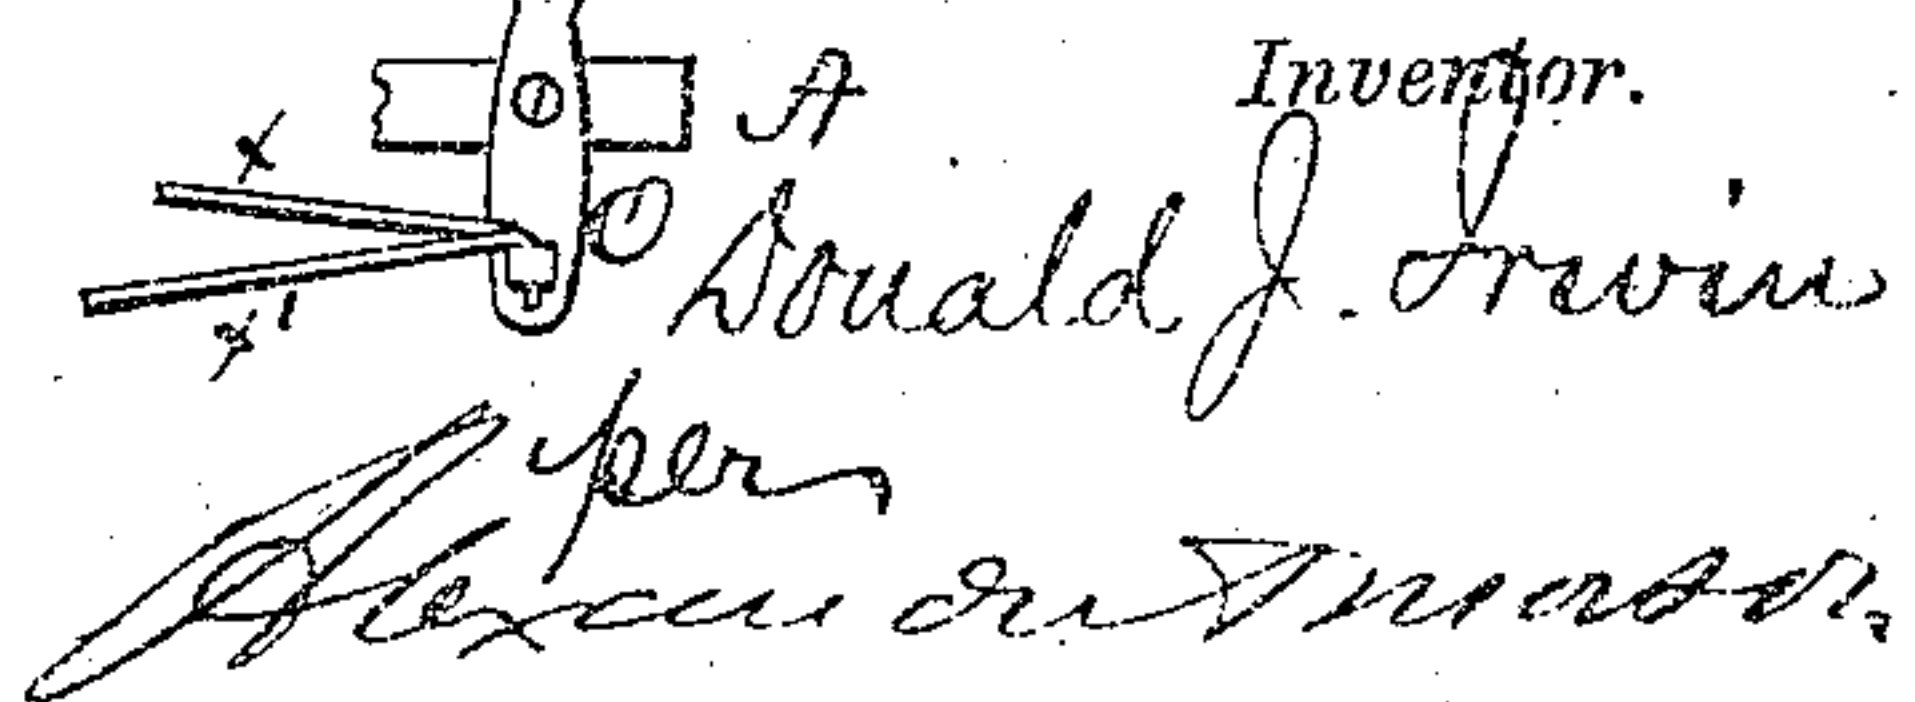 A
Inventor.
x
C
Donald J. Irwin
x'
per
Alexander